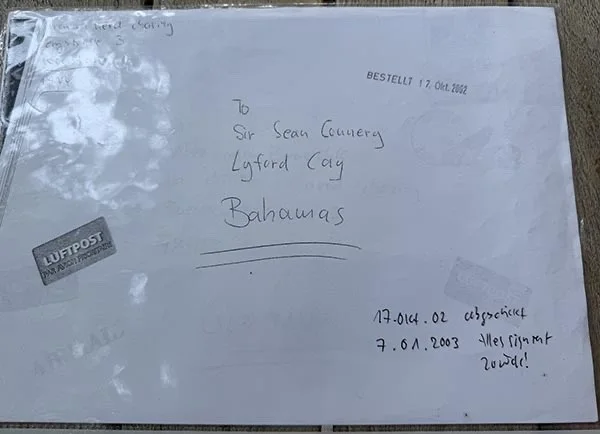 3
BESTELLT 17. Okt. 2002
To
Sir Sean Connery
Lyford Cay
Bahamas
LUFTPOST
17.Okt.02 abgeschickt
7.01.2003 Alles signiert
zurück!